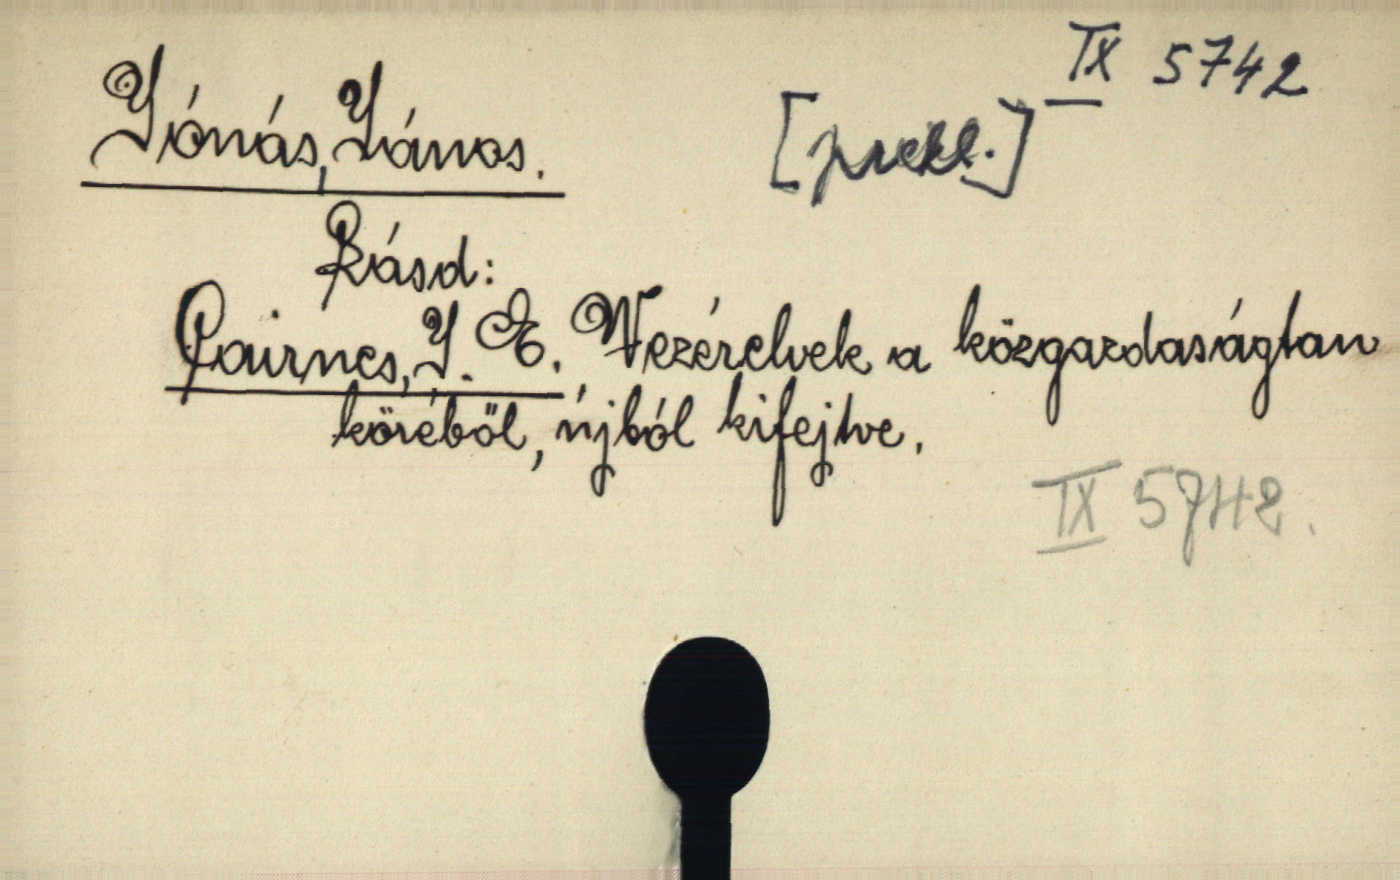 IX 5742
Jónás, János. [prekl.]
Lásd:
Cairnes, J. E. Vezérelvek a közgazdaságtan
köréből, újból kifejtve.
IX 5742.